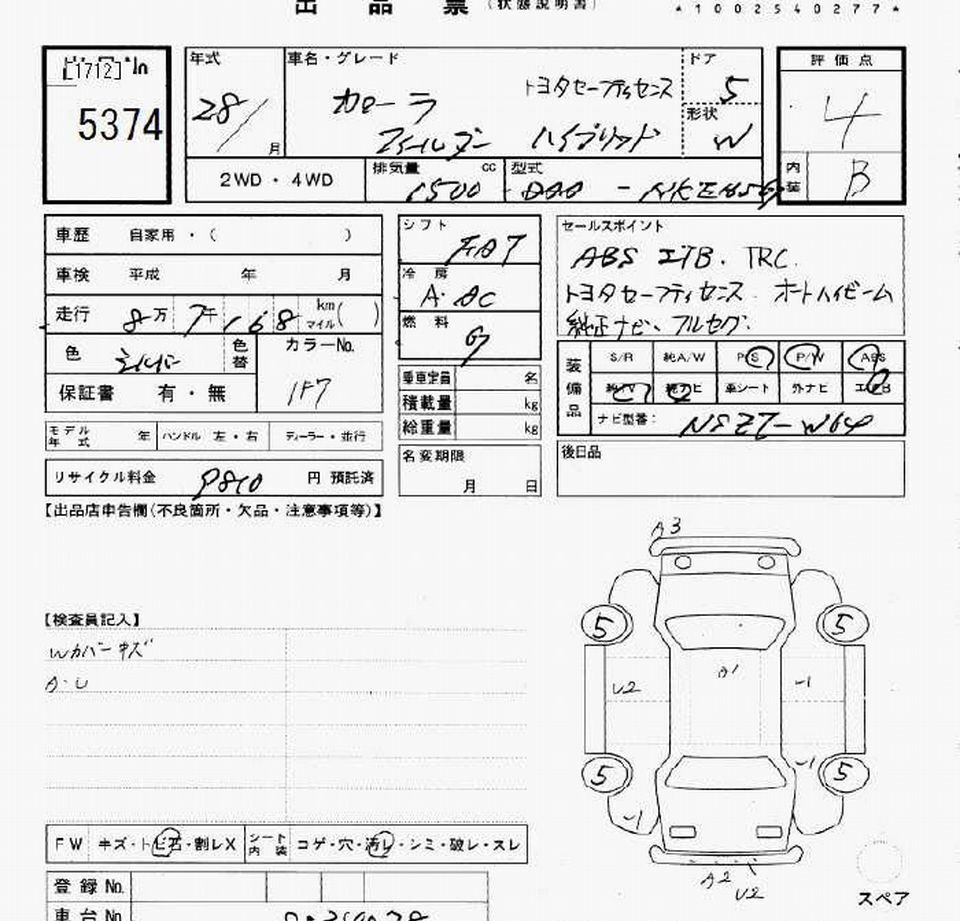 出品票（状態説明書）
*1002540277*
[1712]
5374
年式 車名・グレード ドア 評価点
28/ 月
カローラ トヨタセーフティセンス 5
フィールダー ハイブリッド 形状 W
4
内装 B
2WD・4WD 排気量 1500 cc 型式 DAA - NKE165G
車歴 自家用・( )
車検 平成 年 月
走行 8万7千168 km マイル( )
色 シルバー 色替 カラーNo. 1F7
保証書 有・無
モデル年式 年 ハンドル 左・右 ディーラー・並行
リサイクル料金 9810 円 預託済
シフト FAT
冷房 A・AC
燃料 G
乗車定員 名
積載量 kg
総重量 kg
名変期限
月 日
セールスポイント
ABS エアB. TRC.
トヨタセーフティセンス オートハイビーム
純正ナビ、フルセグ.
装備品 S/R 純A/W P/S P/W ABS
純TV 純ナビ 革シート 外ナビ エアB
ナビ型番: NSZT-W64
後日品
【出品店申告欄(不良箇所・欠品・注意事項等)】
【検査員記入】
Wカバーキズ
A・U
A3
5 5
U2 A1 -1
-1
5 5
-1
A2
U2
スペア
FW キズ・トビ石・割レX シート内装 コゲ・穴・汚レ・シミ・破レ・スレ
登録No.
車台No.